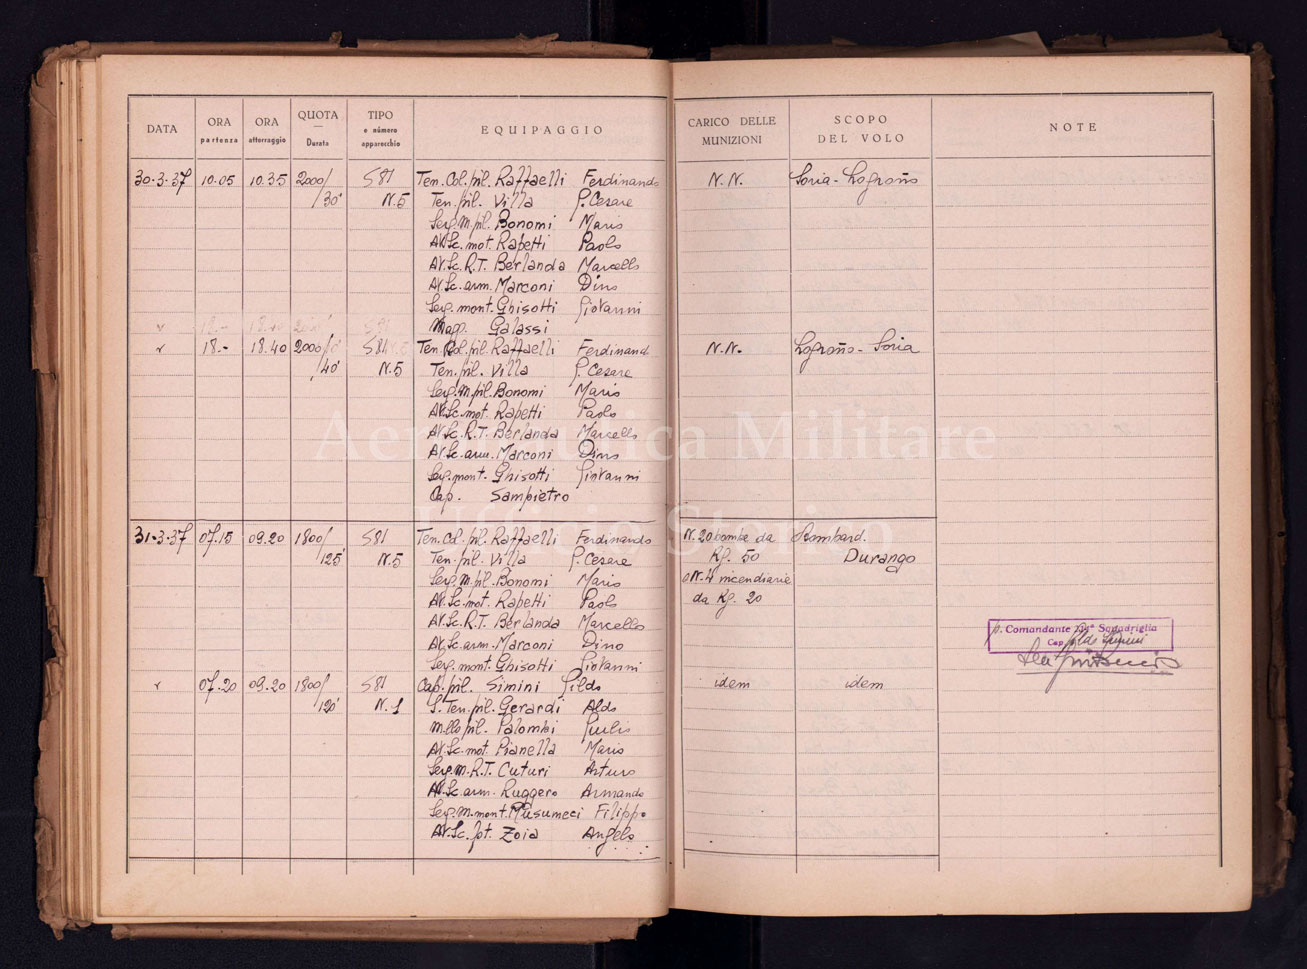 DATA ORA partenza ORA atterraggio QUOTA — Durata TIPO e número apparecchio EQUIPAGGIO CARICO DELLE MUNIZIONI SCOPO DEL VOLO NOTE
30.3.37 10.05 10.35 2000/ S81 Ten.Col.pil. Raffaelli Ferdinando N.N. Soria-Logroño
/30' N.5 Ten.pil. Villa G.Cesare
Serg.M.pil. Bonomi Mario
AV.Sc.mot. Rapetti Paolo
AV.Sc.R.T. Berlanda Marcello
AV.Sc.arm. Marconi Dino
Serg.mont. Ghisotti Giovanni
Magg. Galassi
" 18.- 18.40 2000/ S81 Ten.Col.pil. Raffaelli Ferdinand N.N. Logroño-Soria
/40' N.5 Ten.pil. Villa G.Cesare
Serg.M.pil. Bonomi Mario
AV.Sc.mot. Rapetti Paolo
AV.Sc.R.T. Berlanda Marcello
AV.Sc.arm. Marconi Dino
Serg.mont. Ghisotti Giovanni
Cap. Sampietro
31.3.37 07.15 09.20 1800/ S81 Ten.Col.pil. Raffaelli Ferdinando N.20 bombe da Bombard.
/125' N.5 Ten.pil. Villa G.Cesare Kg. 50 Durango
Serg.M.pil. Bonomi Mario N.4 incendiarie
AV.Sc.mot. Rapetti Paolo da Kg. 20
AV.Sc.R.T. Berlanda Marcello
AV.Sc.arm. Marconi Dino
Serg.mont. Ghisotti Giovanni
p. Comandante 214ª Squadriglia
Cap.
" 07.20 09.20 1800/ S81 Cap.pil. Simini Gildo idem idem
/120' N.1 S.Ten.pil. Gerardi Aldo
M.llo pil. Palombi Giulio
AV.Sc.mot. Pianella Mario
Serg.M.R.T. Cuturi Arturo
AV.Sc.arm. Ruggero Armando
Serg.M.mont. Musumeci Filippo
AV.Sc.fot. Zoia Angelo
Aeronautica Militare
Ufficio Storico